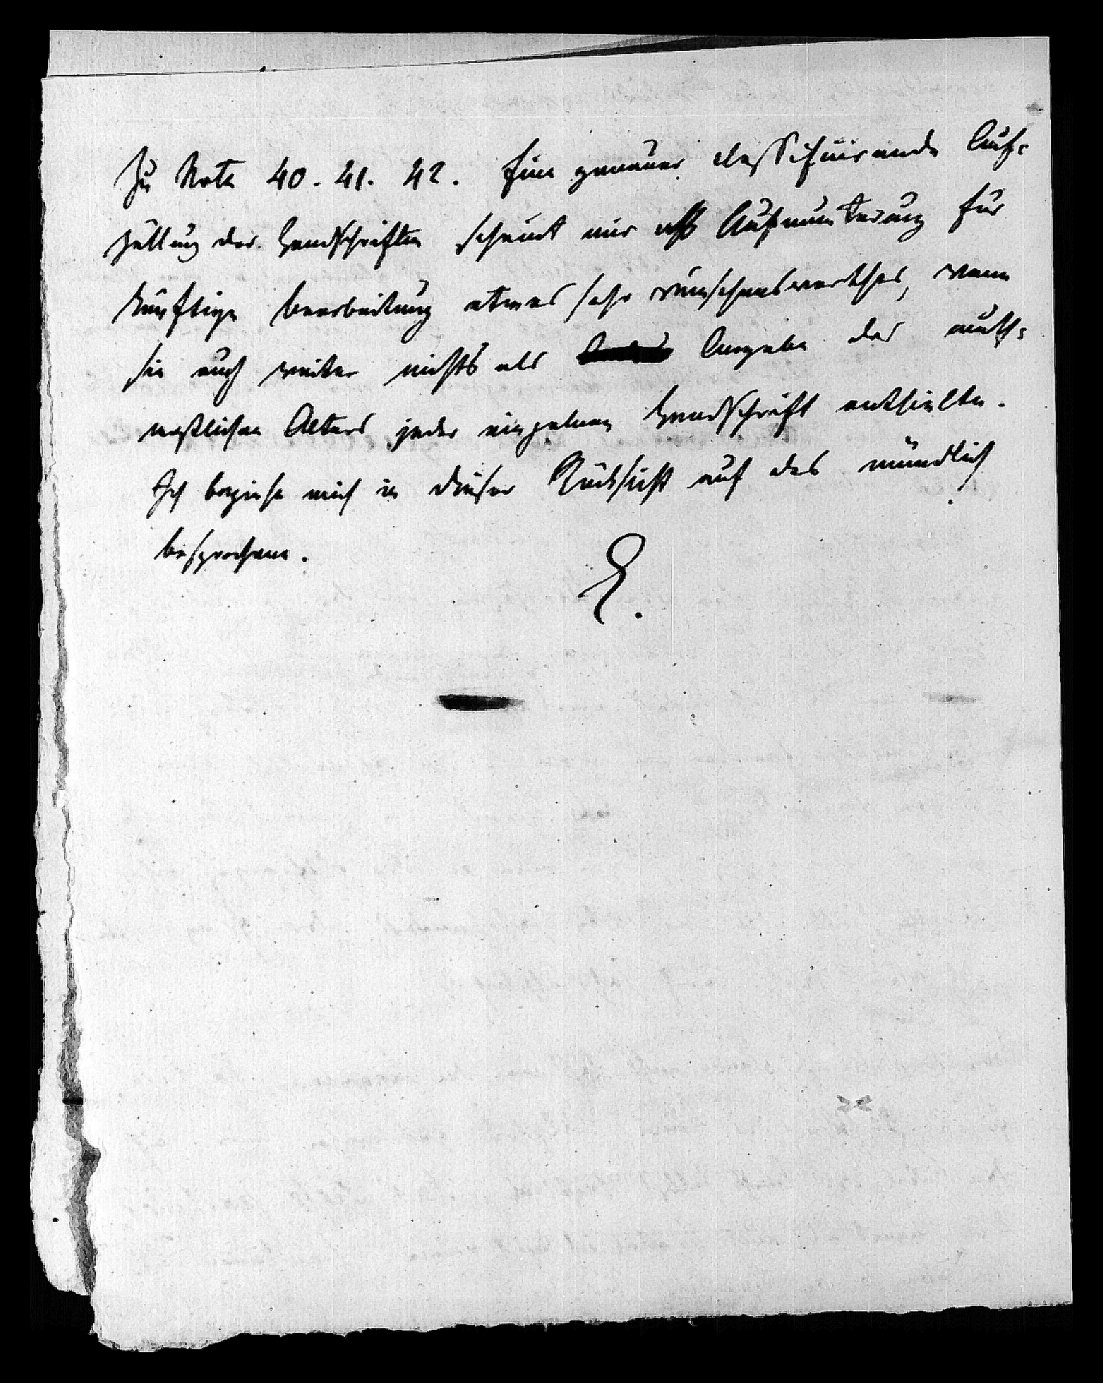 Zu Note 40. 41. 42. Eine genauer classificirende Auf-
zällung der Handschriften scheint mir als Aufmunterung für
künftige bearbeitung etwas sehr wünschenswerthes, wenn
sie auch weiter nichts als Angabe des muth-
maßlichen Alters jeder einzelnen Handschrift enthielte.
Ich beziehe mich in dieser Rücksicht auf das mündlich
besprochene.
E.